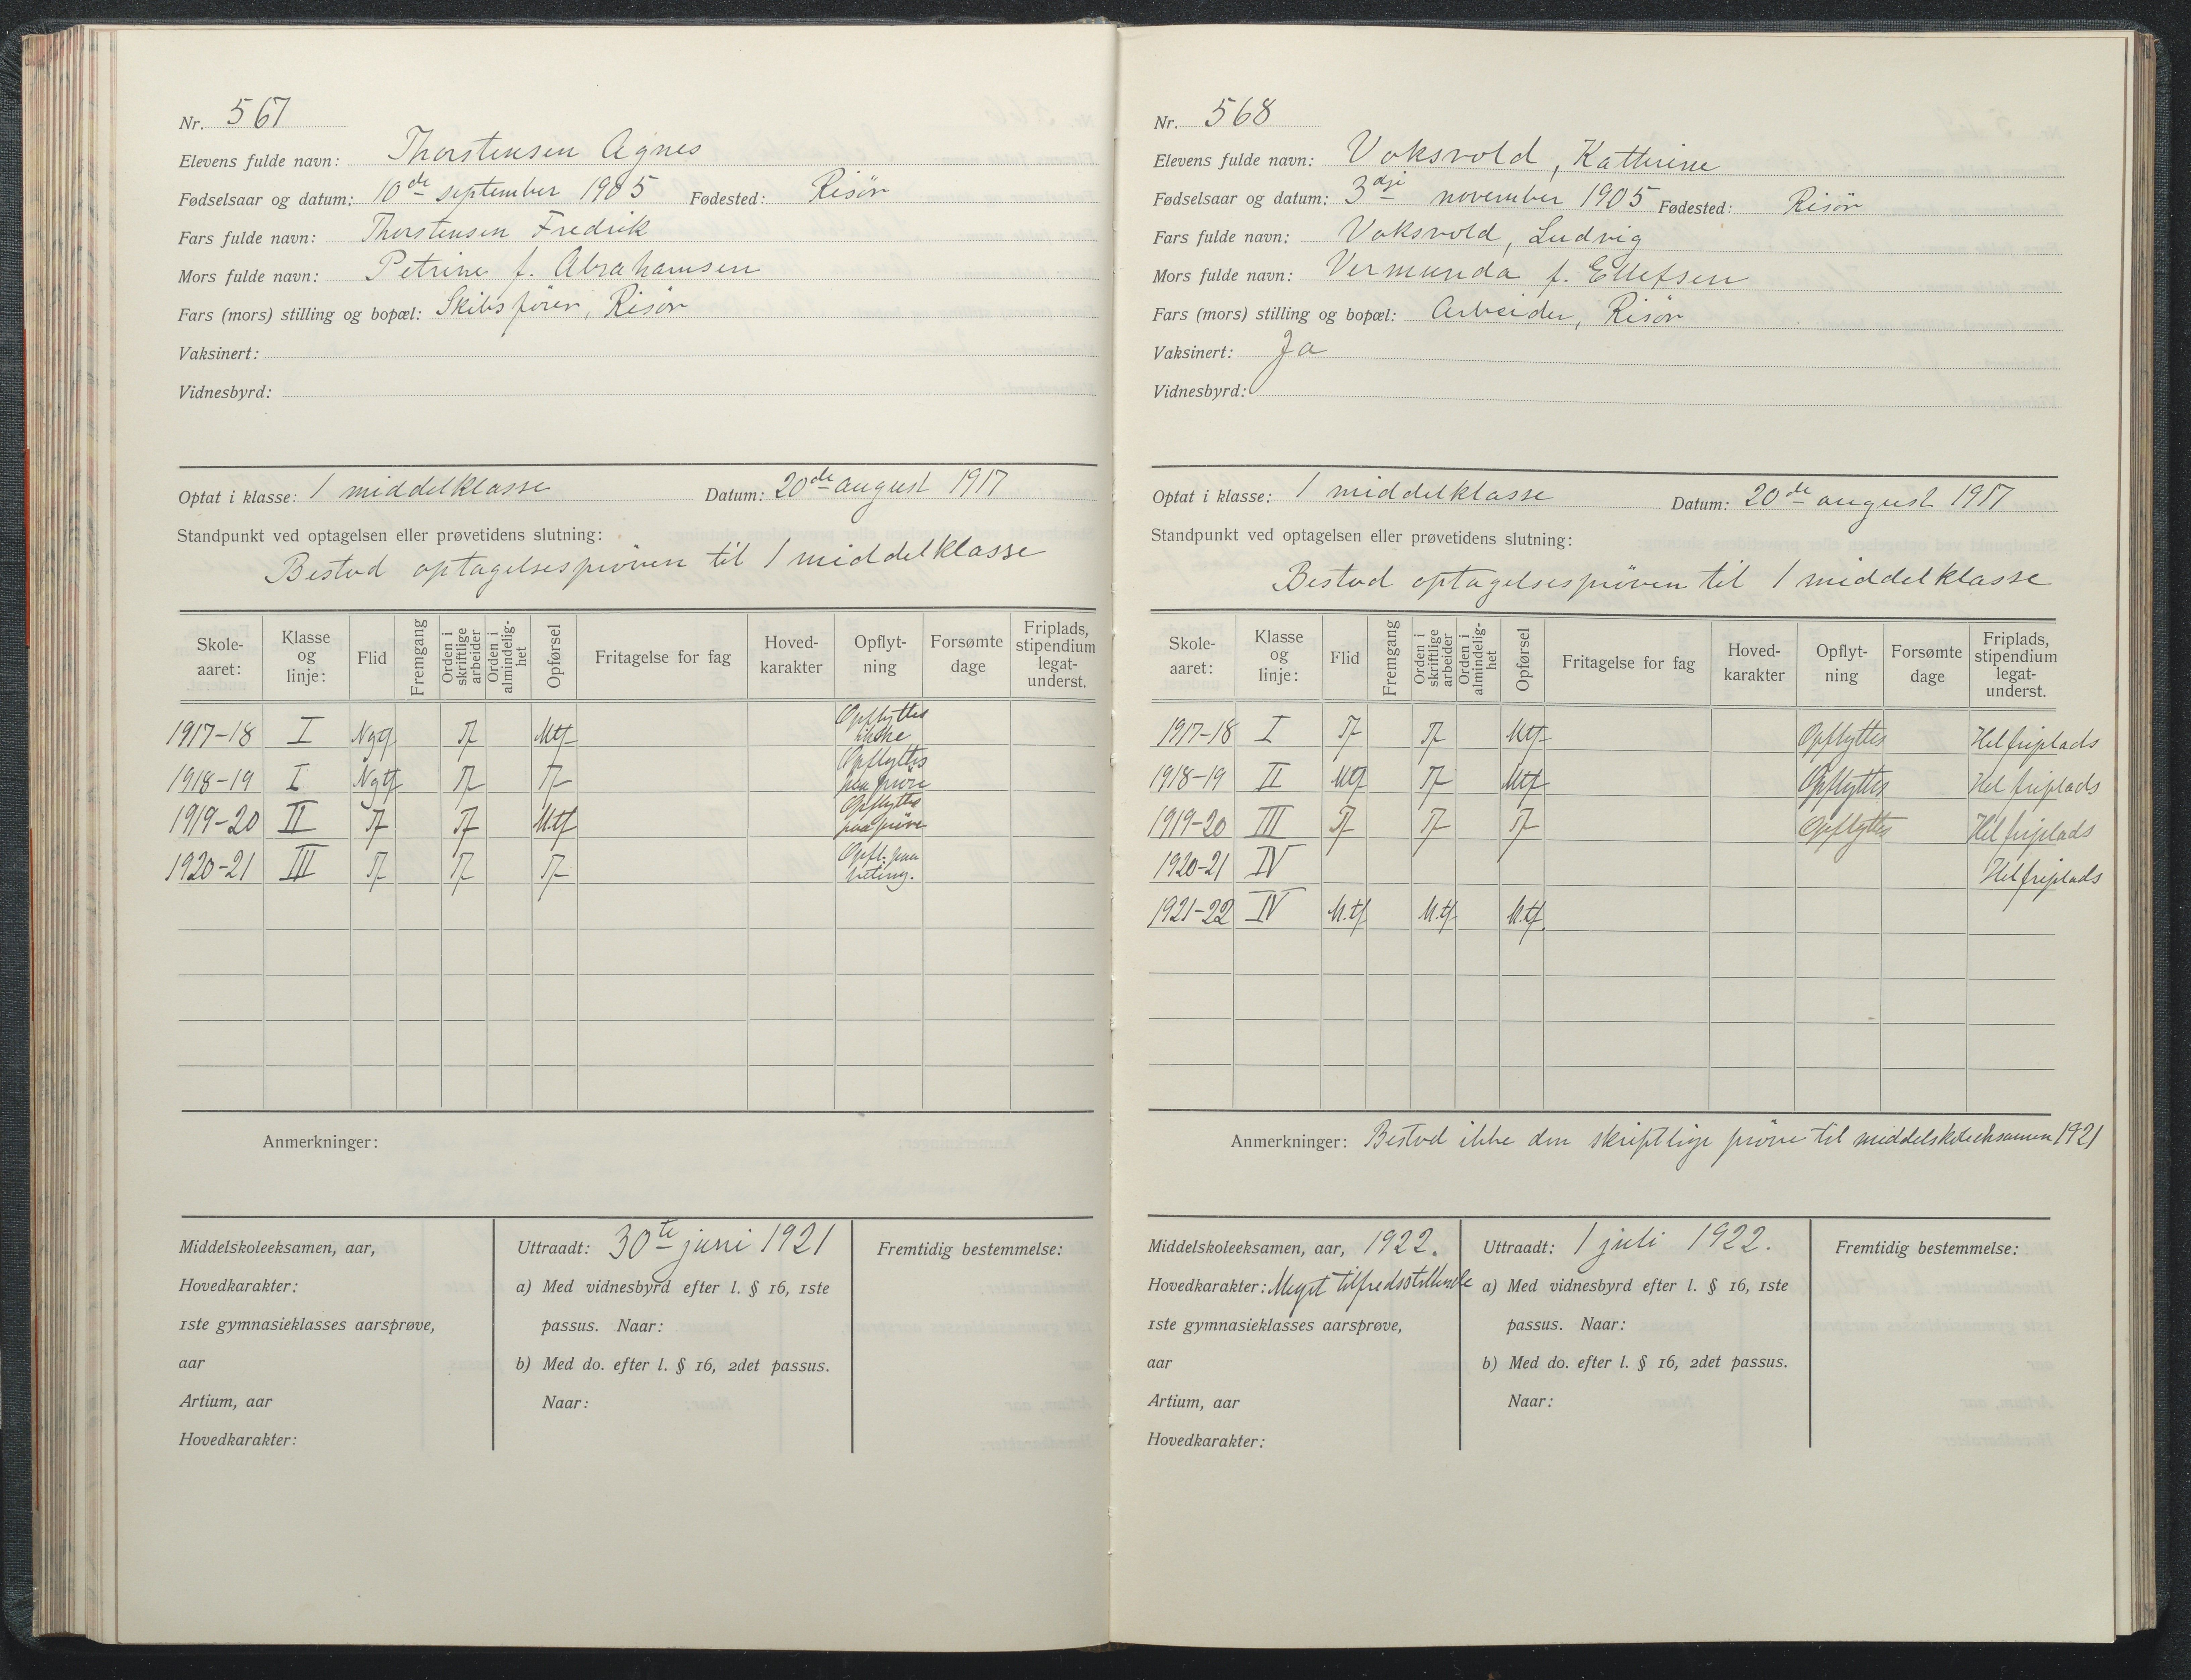 Nr. 567
Elevens fulde navn: Thorstensen Agnes
Fødselsaar og datum: 10de september 1905 Fødested: Risør
Fars fulde navn: Thorstensen Fredrik
Mors fulde navn: Petrine f. Abrahamsen
Fars (mors) stilling og bopæl: Skibsfører, Risør
Vaksinert:
Vidnesbyrd:
Optat i klasse: 1 middelklasse Datum: 20de august 1917
Standpunkt ved optagelsen eller prøvetidens slutning:
Bestod optagelsesprøven til 1 middelklasse
Skole-aaret: Klasse og linje: Flid Fremgang Orden i skriftlige arbeider Orden i almindelig-het Opførsel Fritagelse for fag Hoved-karakter Opflyt-ning Forsømte dage Friplads, stipendium legat-underst.
1917-18 I Ngtf Tf Mtf Opflyttes ikke
1918-19 I Ngtf Tf Tf Opflyttes paa prøve
1919-20 II Tf Tf M.tf Opflyttes paa prøve
1920-21 III Tf Tf Tf Opfl. paa beting.
Anmerkninger:
Middelskoleeksamen, aar,
Hovedkarakter:
1ste gymnasieklasses aarsprøve,
aar
Artium, aar
Hovedkarakter:
Uttraadt: 30te juni 1921
a) Med vidnesbyrd efter l. § 16, 1ste
passus. Naar:
b) Med do. efter l. § 16, 2det passus.
Naar:
Fremtidig bestemmelse:
Nr. 568
Elevens fulde navn: Voksvold, Kathrine
Fødselsaar og datum: 3dje november 1905 Fødested: Risør
Fars fulde navn: Voksvold, Ludvig
Mors fulde navn: Vermunda f. Ellefsen
Fars (mors) stilling og bopæl: Arbeider, Risør
Vaksinert: Ja
Vidnesbyrd:
Optat i klasse: 1 middelklasse Datum: 20de august 1917
Standpunkt ved optagelsen eller prøvetidens slutning:
Bestod optagelsesprøven til 1 middelklasse
Skole-aaret: Klasse og linje: Flid Fremgang Orden i skriftlige arbeider Orden i almindelig-het Opførsel Fritagelse for fag Hoved-karakter Opflyt-ning Forsømte dage Friplads, stipendium legat-underst.
1917-18 I Tf Tf Mtf Opflyttes Hel friplads
1918-19 II Mtf Tf Mtf Opflyttes Hel friplads
1919-20 III Tf Tf Tf Opflyttes Hel friplads
1920-21 IV Hel friplads
1921-22 IV M.tf M.tf M.tf.
Anmerkninger: Bestod ikke den skriftlige prøve til middelskoleeksamen 1921
Middelskoleeksamen, aar, 1922.
Hovedkarakter: Meget tilfredsstillende
1ste gymnasieklasses aarsprøve,
aar
Artium, aar
Hovedkarakter:
Uttraadt: 1 juli 1922.
a) Med vidnesbyrd efter l. § 16, 1ste
passus. Naar:
b) Med do. efter l. § 16, 2det passus.
Naar:
Fremtidig bestemmelse: